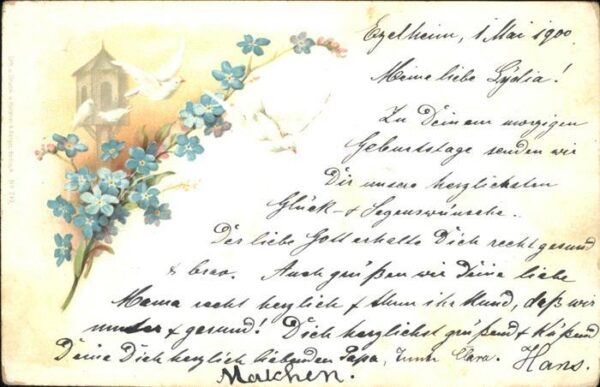 Ezelheim, 1 Mai 1900
Meine liebe Lydia!
Zu Deinem morgigen
Geburtstage senden wir
Dir unsere herzlichsten
Glück- & Segenswünsche.
Der liebe Gott erhalte Dich recht gesund
& brav. Auch grüßen wir Deine liebe
Mama recht herzlich & thun ihr kund, daß wir
munter & gesund! Dich herzlichst grüßend & küßend
Deine Dich herzlich liebenden Papa, Clara. Hans.
Malchen.